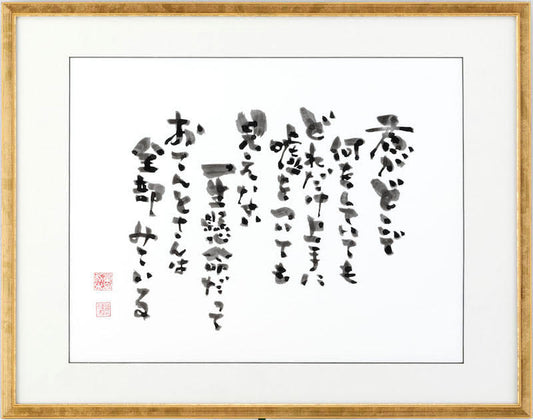 君がどこで
何をしていても
どれだけ上手に
嘘をついても
見えない
一生懸命だって
おてんとさんは
全部みている